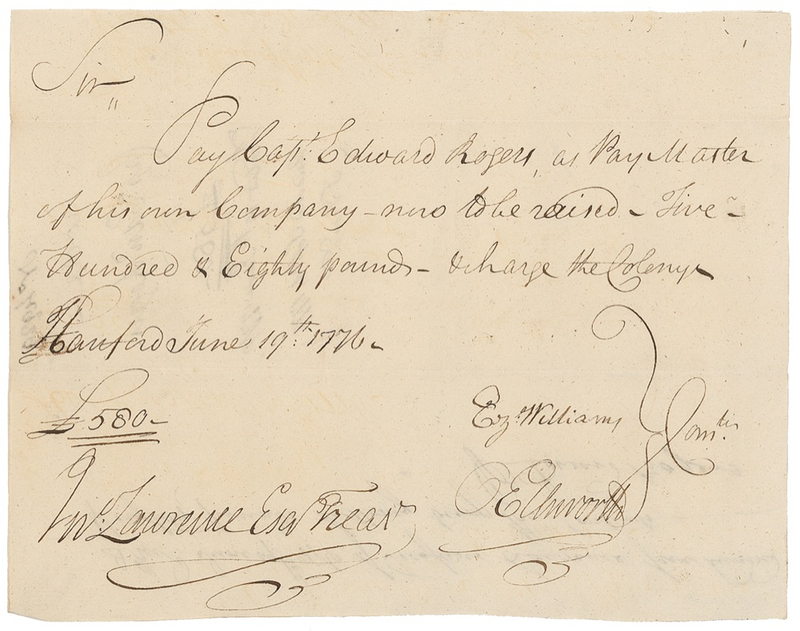 Sir,,
Pay Capt. Edward Rogers, as Pay Master
of his own Company - now to be raised - Five-
Hundred & Eighty pounds - & charge the Colony
Hartford June 19th. 1776-
£580-
Ezr. Williams
Comtee
OEllsworth
Jno. Lawrence Esqr. Treasr